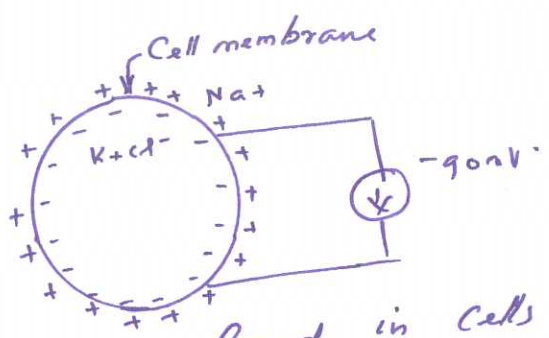 Cell membrane
Na+
K+cl-
-90mV.
in Cells